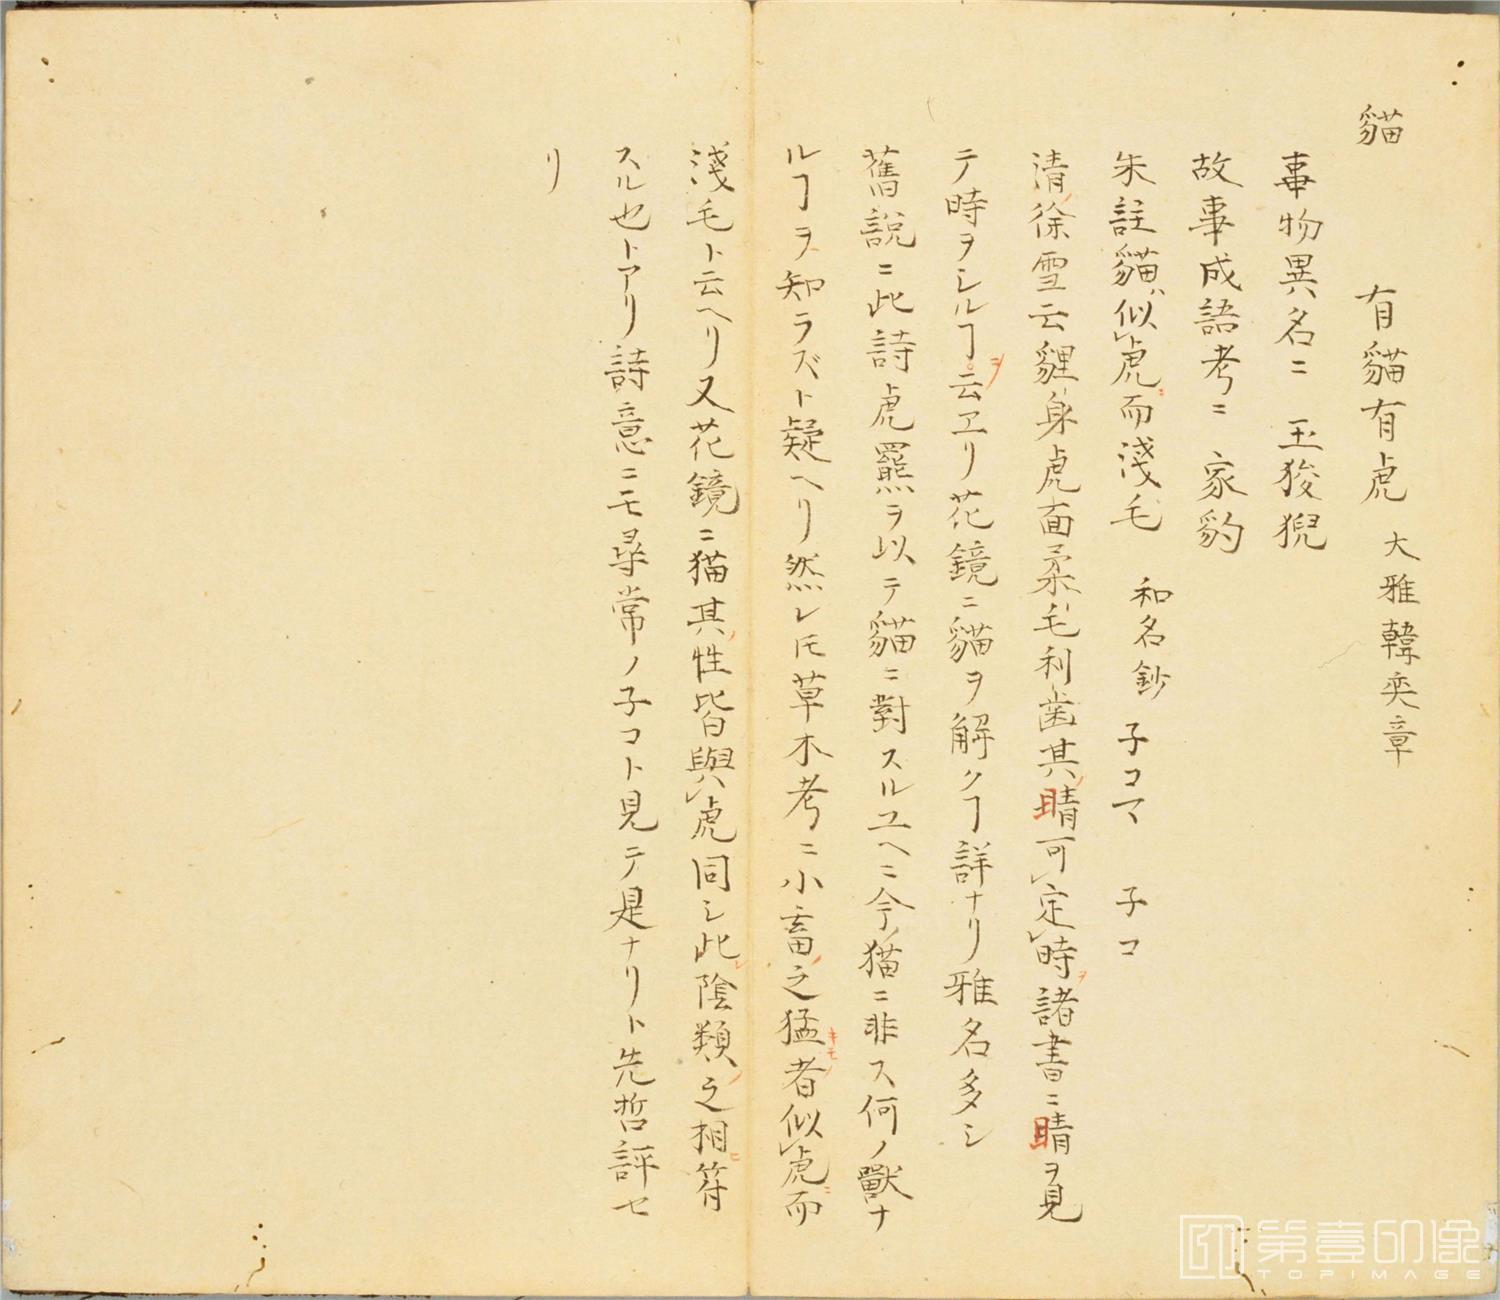 貓　有貓有虎　大雅韓奕章
事物異名ニ　玉狻猊
故事成語考ニ　家豹
朱註貓ハ似レ虎ニ而淺毛　和名鈔　子コマ　子コ
清ノ徐雪云貍身虎面柔毛利歯其ノ睛可レ定レ時ヲ諸書ニ睛ヲ見
テ時ヲシルヿヲ云エリ花鏡ニ貓ヲ解クヿ詳ナリ雅名多シ
舊説ニ此詩虎羆ヲ以テ貓ニ對スルユヘニ今ノ猫ニ非ス何ノ獸ナ
ルヿヲ知ラズト疑ヘリ然レ𪜈草木考ニ小畜ノ之猛キ者モノ似レ虎ニ而
淺毛ト云ヘリ又花鏡ニ猫其ノ性皆與レ虎同シ此レ陰類ノ之相符ニ
スル也トアリ詩意ニモ尋常ノ子コト見テ是ナリト先哲評セ
リ
第壹印像
TOPIMAGE